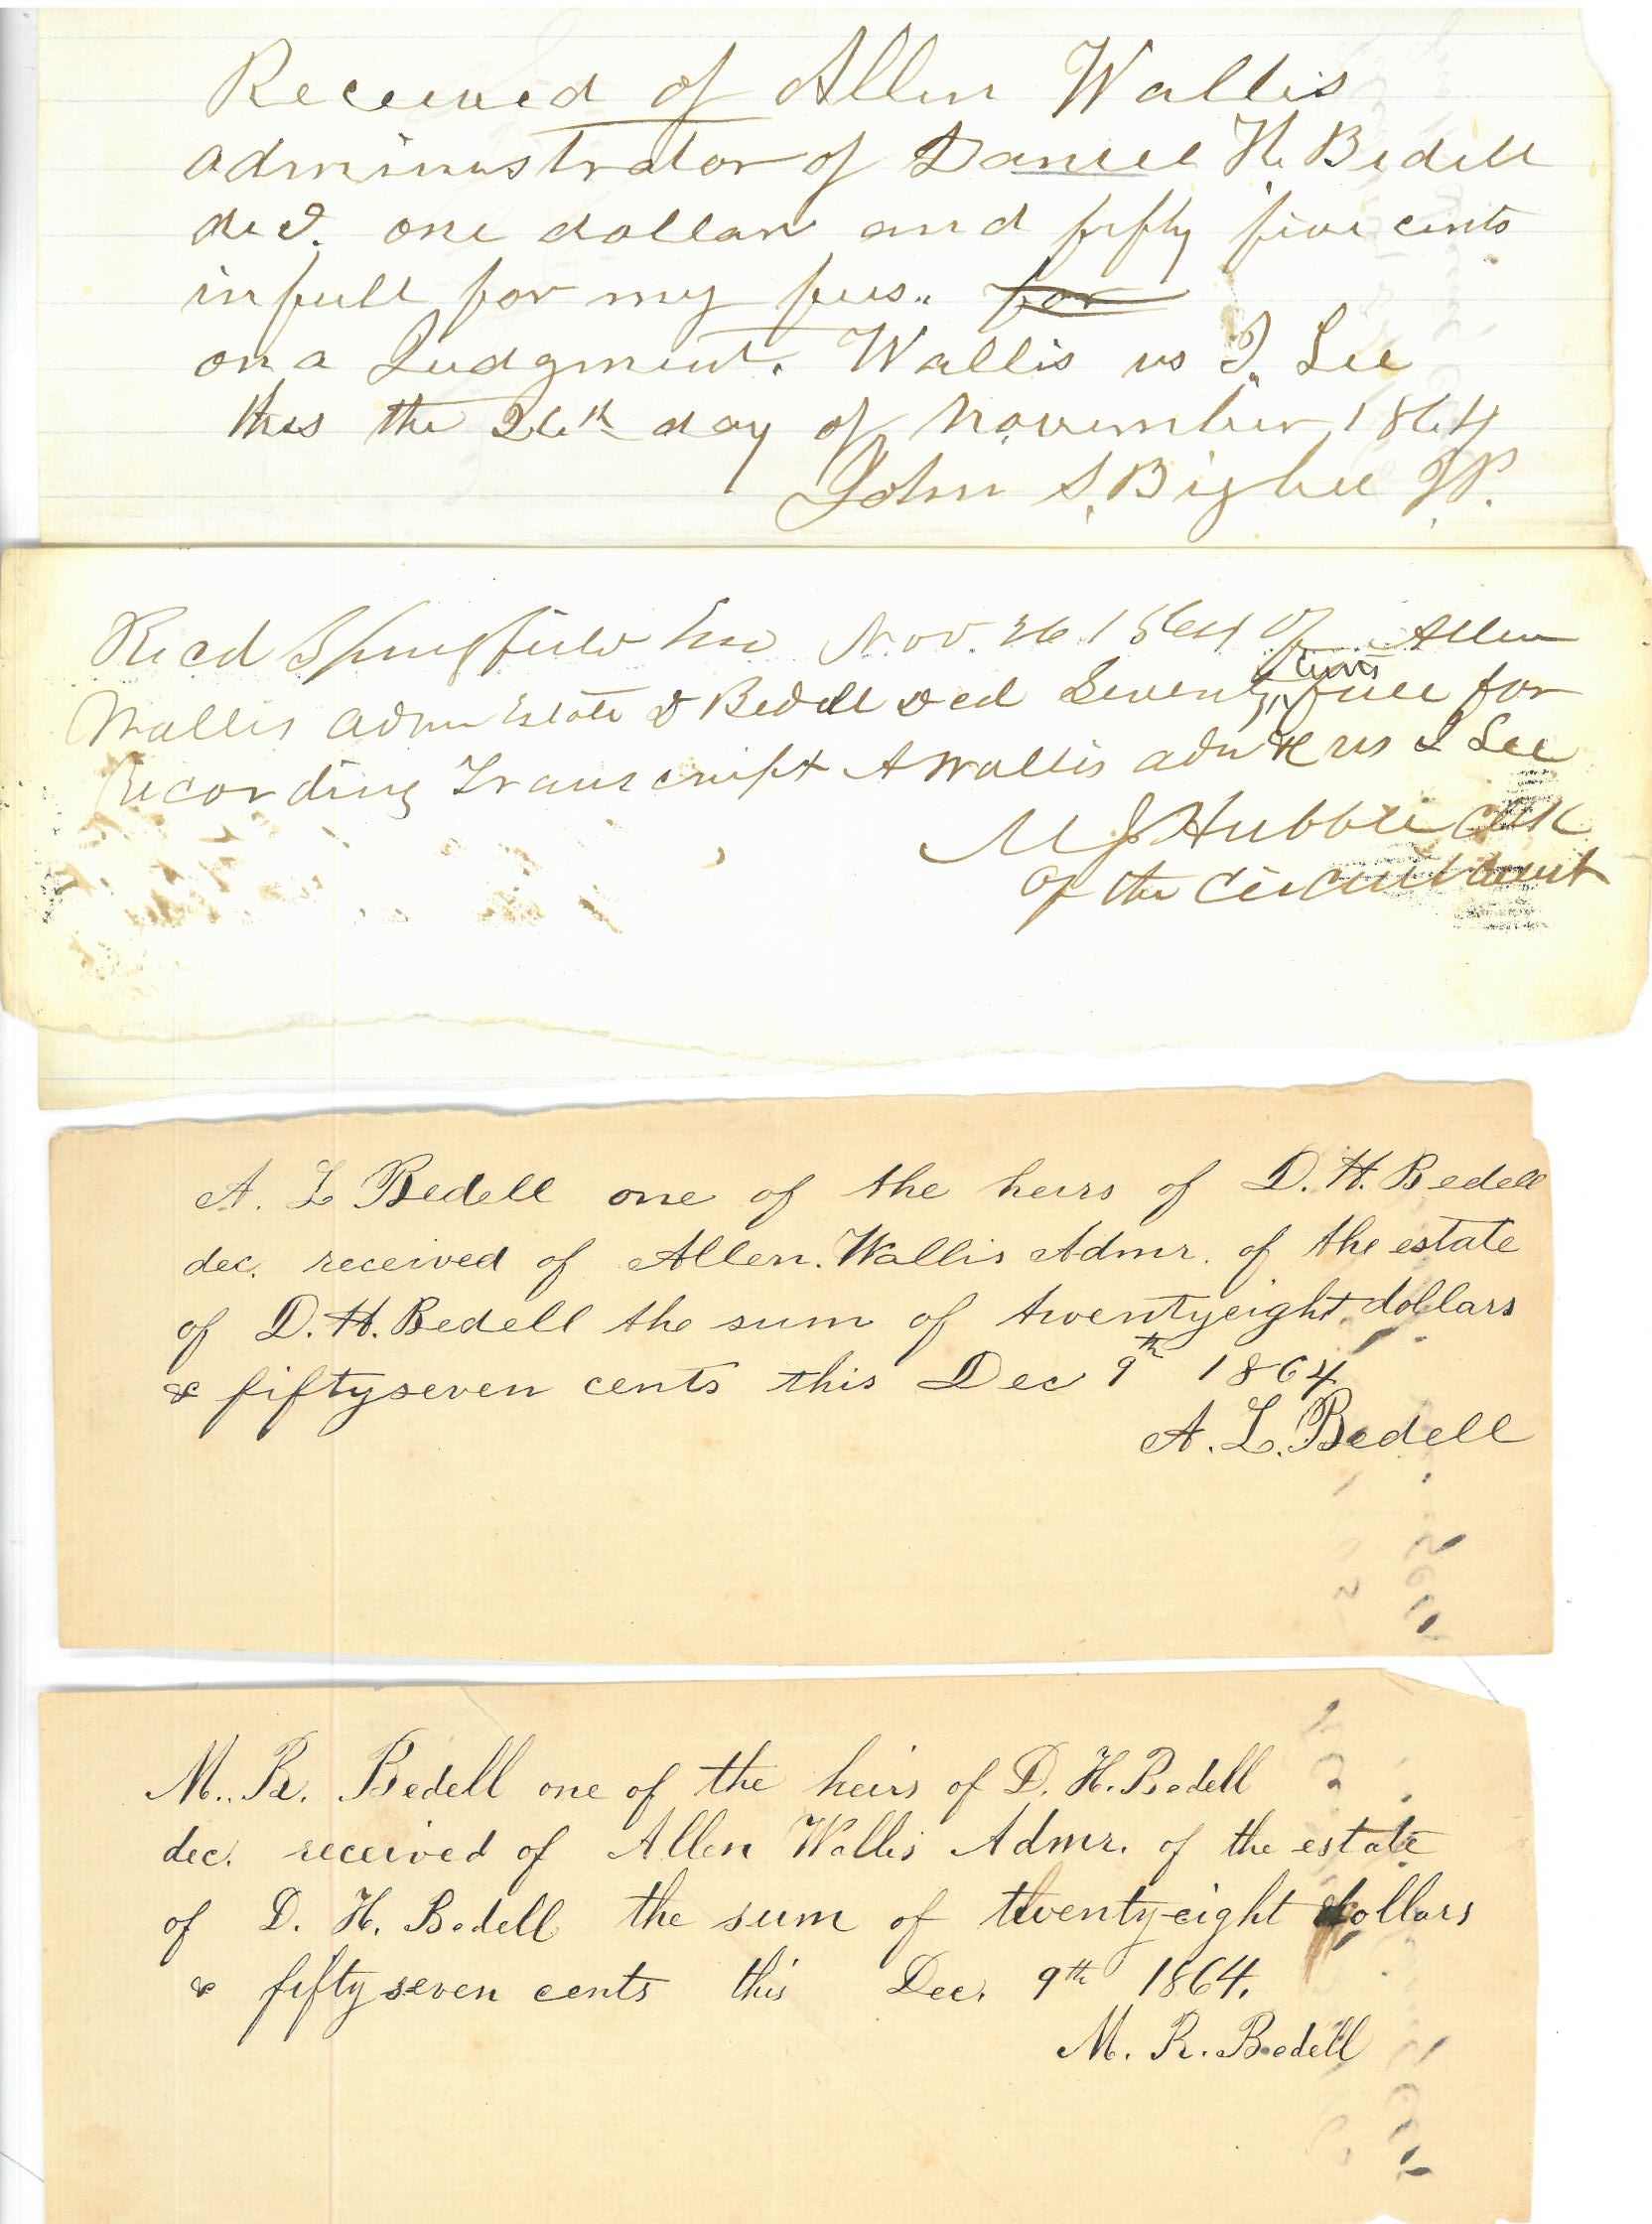 Received of Allen Wallis
administrator of Daniel H. Bedell
decd. one dollar and fifty five cents
in full for my fees. for
on a Judgment. Wallis vs J. Lee
this the 26th day of November 1864
John S. Bigbee J.P.
Recd Springfield Mo Nov. 26 1864 of Allen
Wallis admr Estate D Bedell decd Seventy five cents for
Recording Transcript A Wallis admr &c vs J Lee
M J Hubble Clk
of the circuit court
A. L Bedell one of the heirs of D. H. Bedell
dec. received of Allen. Wallis Admr. of the estate
of D. H. Bedell the sum of twentyeight dollars
& fiftyseven cents this Dec 9th 1864
A. L. Bedell
M.. R. Bedell one of the heirs of D. H. Bedell
dec. received of Allen Wallis Admr. of the estate
of D. H. Bedell the sum of twenty-eight dollars
& fifty seven cents this Dec. 9th 1864.
M. R. Bedell